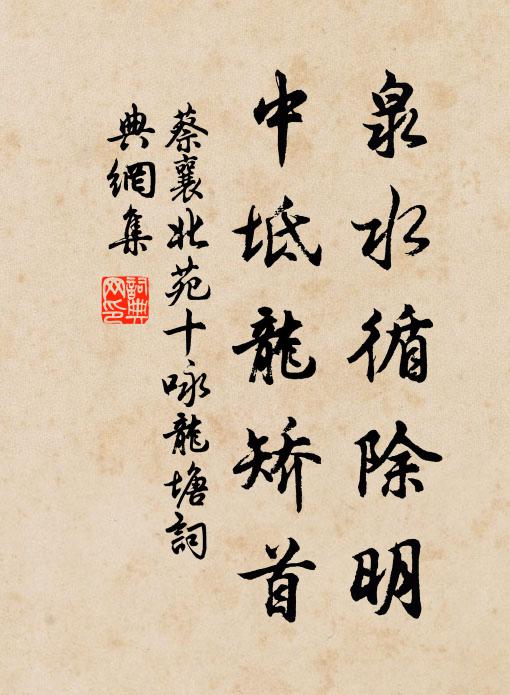 泉水循除明
中坻龍矯首
蔡襄北苑十咏龍塘詞
典網集
詞典网印